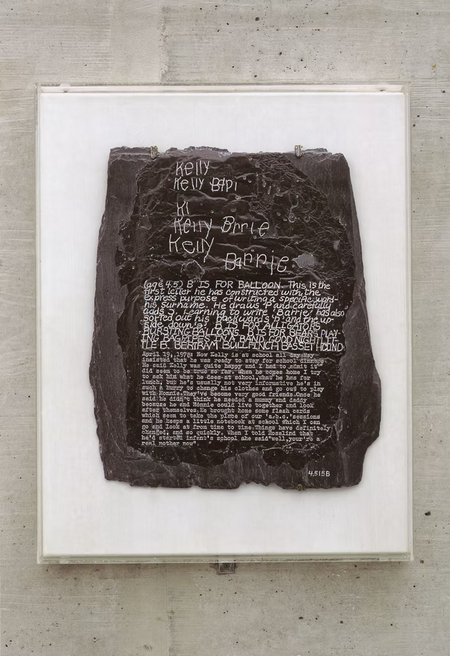 Kelly
Kelly BAPI
KI
Kelly Brrie
Kelly
BArrie
(age 4.5) B IS FOR BALLOON. This is the
first letter he has constructed with the
express purpose of writing a specific word-
his surname. He draws 'P' and carefully
adds Learning to write 'Barrie' has also
sorted out his backwards 'h' and the up-
side down B IS FOR ALLIGATORS
BURSTING BALLOONS. B IS FOR BEARS PLAY-
ING
B.B. BERTRAM BULLFINCH BASSETHOUND
April 19, 1978: Now Kelly is at school all day. Ray
insisted that he was ready to stay for school dinners.
He said Kelly was quite happy and I had to admit it
did seem to be true so far. When he comes home I try
to ask him what he does at school, what he has for
lunch, but he's usually not very informative he's in
such a hurry to change his clothes and go out to play
with Ronnie. They've become very good friends. Once he
said he didn't think he needed a mummy and daddy
because he and Ronnie could live together and look
after themselves. He brought home some flash cards
which seem to be the piece of our 'a.b.c.' sessions
and he keeps a little notebook at school which I can
go and look at from time to time. Things have definitely
changed, and so quickly. When I told Rosalind that
he'd started infant's school she said "well, your're a
real mother now".
4.515B